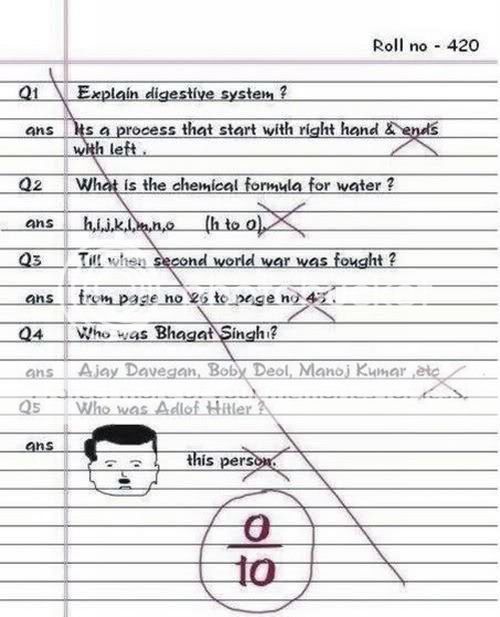 Roll no - 420
Q1 Explain digestive system ?
ans Its a process that start with right hand & ends
with left .
Q2 What is the chemical formula for water ?
ans h,i,j,k,l,m,n,o (h to o).
Q3 Till when second world war was fought ?
ans from page no 26 to page no 43 .
Q4 Who was Bhagat Singh?
ans Ajay Davegan, Boby Deol, Manoj Kumar ,etc
Q5 Who was Adlof Hitler ?
ans this person.
0
10